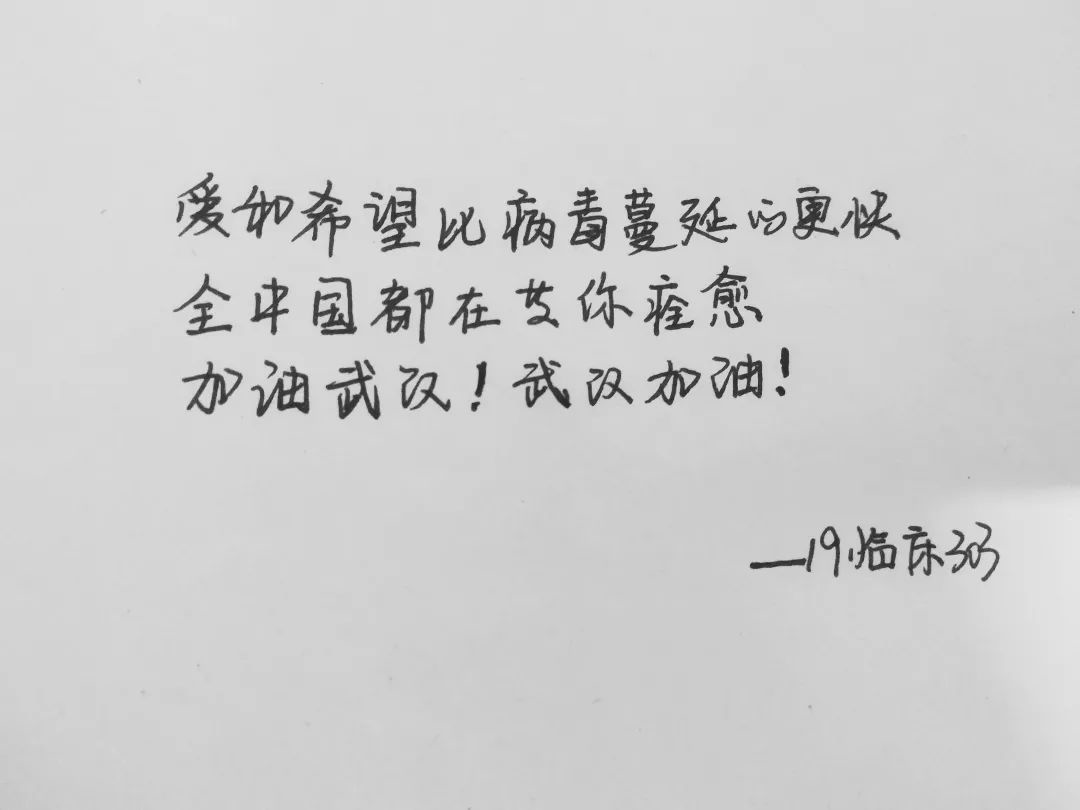 爱和希望比病毒蔓延的更快
全中国都在等你痊愈
加油武汉！武汉加油！
—19临床303